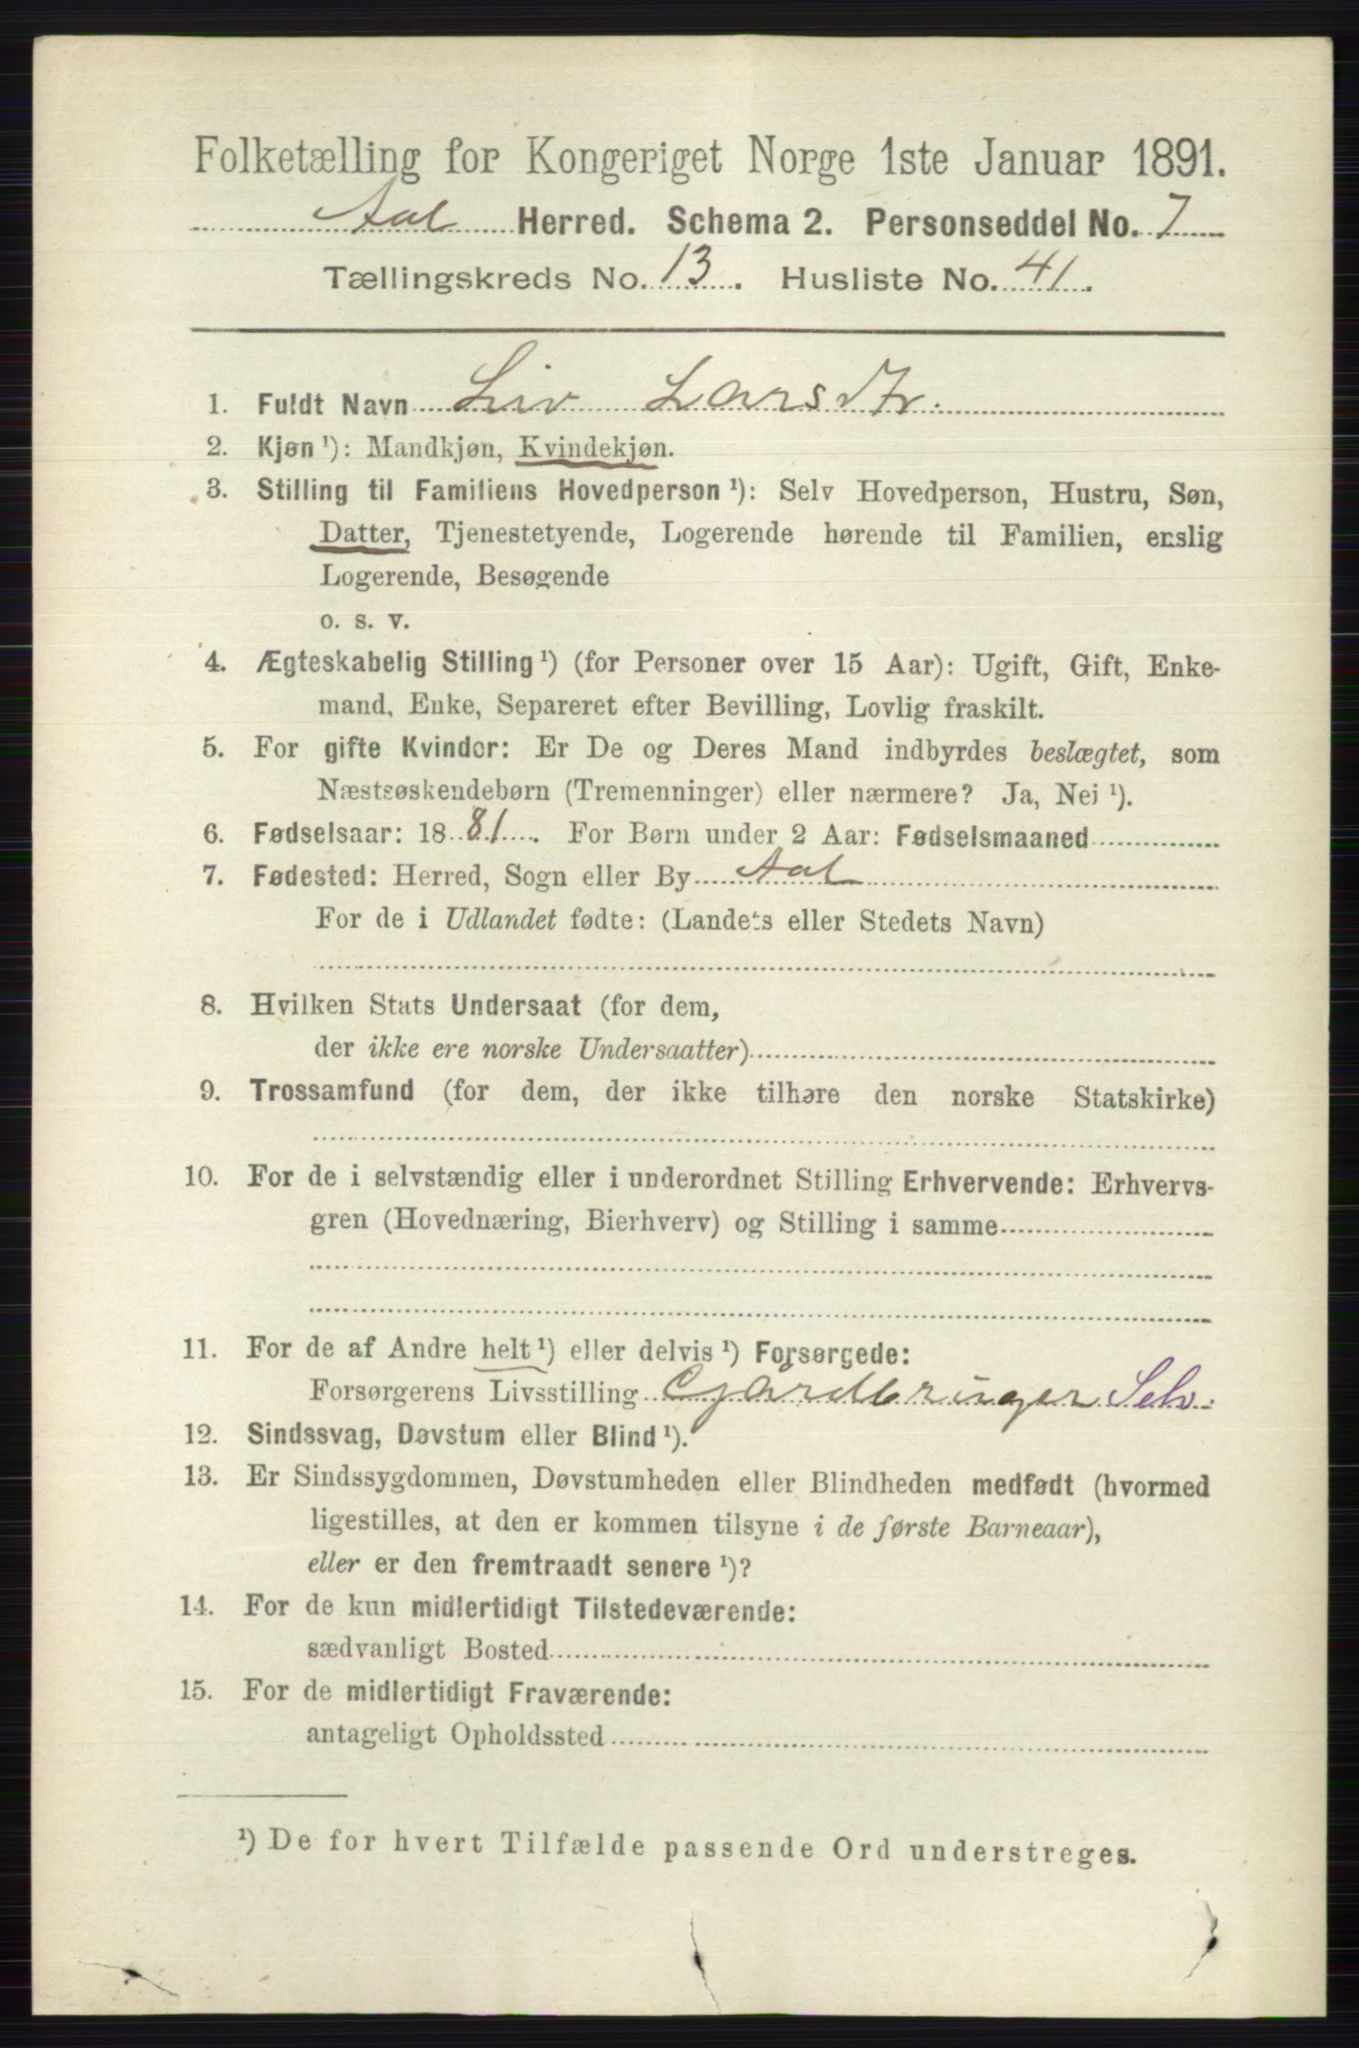 Folketælling for Kongeriget Norge 1ste Januar 1891.
Aal Herred. Schema 2. Personseddel No. 7
Tællingskreds No. 13. Husliste No. 41.
1. Fuldt Navn Liv Larsdtr.
2. Kjøn ¹): Mandkjøn, Kvindekjøn.
3. Stilling til Familiens Hovedperson ¹): Selv Hovedperson, Hustru, Søn,
Datter, Tjenestetyende, Logerende hørende til Familien, enslig
Logerende, Besøgende
o. s. v.
4. Ægteskabelig Stilling ¹) (for Personer over 15 Aar): Ugift, Gift, Enke-
mand, Enke, Separeret efter Bevilling, Lovlig fraskilt.
5. For gifte Kvinder: Er De og Deres Mand indbyrdes beslægtet, som
Næstsøskendebørn (Tremenninger) eller nærmere? Ja, Nei ¹).
6. Fødselsaar: 1881. For Børn under 2 Aar: Fødselsmaaned
7. Fødested: Herred, Sogn eller By Aal
For de i Udlandet fødte: (Landets eller Stedets Navn)
8. Hvilken Stats Undersaat (for dem,
der ikke ere norske Undersaatter)
9. Trossamfund (for dem, der ikke tilhøre den norske Statskirke)
10. For de i selvstændig eller i underordnet Stilling Erhvervende: Erhvervs-
gren (Hovednæring, Bierhverv) og Stilling i samme
11. For de af Andre helt ¹) eller delvis ¹) Forsørgede:
Forsørgerens Livsstilling Gjårdbruger Selv.
12. Sindssvag, Døvstum eller Blind ¹).
13. Er Sindssygdommen, Døvstumheden eller Blindheden medfødt (hvormed
ligestilles, at den er kommen tilsyne i de første Barneaar),
eller er den fremtraadt senere ¹)?
14. For de kun midlertidigt Tilstedeværende:
sædvanligt Bosted
15. For de midlertidigt Fraværende:
antageligt Opholdssted
¹) De for hvert Tilfælde passende Ord understreges.